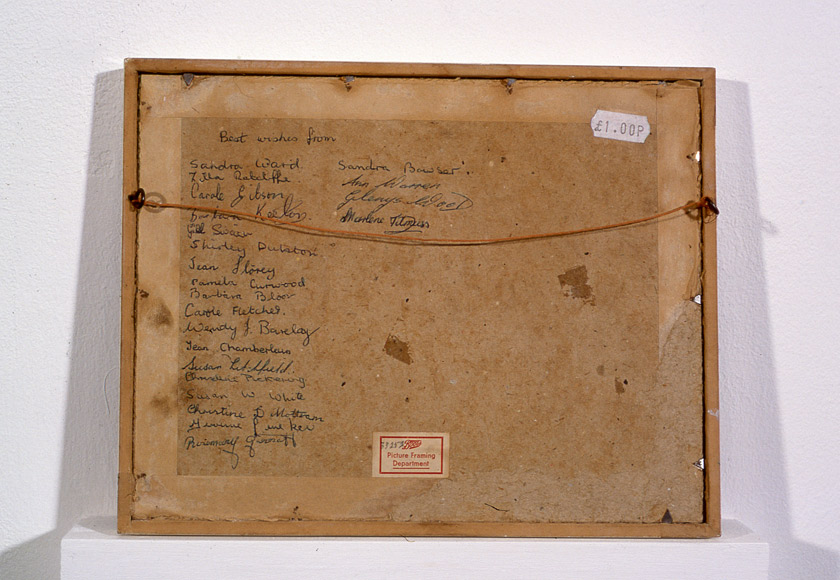 Best wishes from
Sandra Ward.
Zilla Ratcliffe.
Carole Gibson
Barbara
Jill
Shirley
Jean Storey
Pamela Curwood
Barbara Bloor
Carole Fletcher.
Wendy J. Barclay
Jean Chamberlain
Susan Litchfield.
Christine Pickering
Susan W White
Christine D Mottram
Rosemary Garratt
Sandra Bowser.
Ann Warren
Glenys Wood
Marlene Titmuss
£1.00P
Boots
Picture Framing
Department